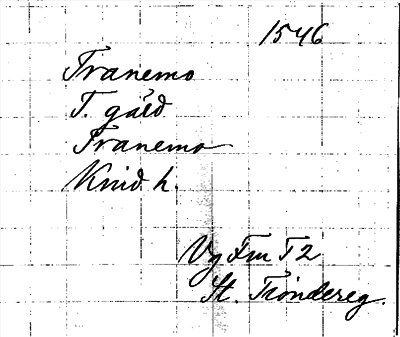 1546
Tranemo
T. gäld
Tranemo
Kind h.
Vg Fru T 2
St. Tröndereg.